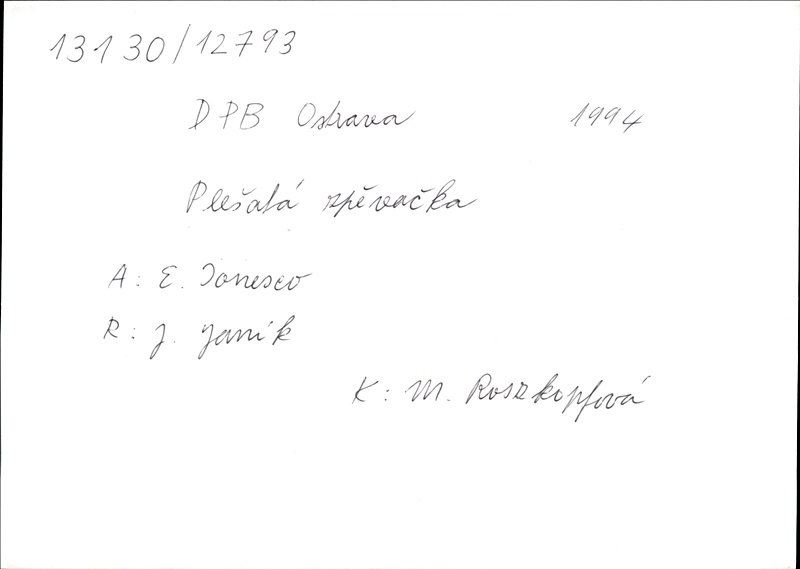 13130/12793
DPB Ostrava 1994
Plešatá zpěvačka
A: E. Ionesco
R: J. Janík
K: M. Roszkopfová